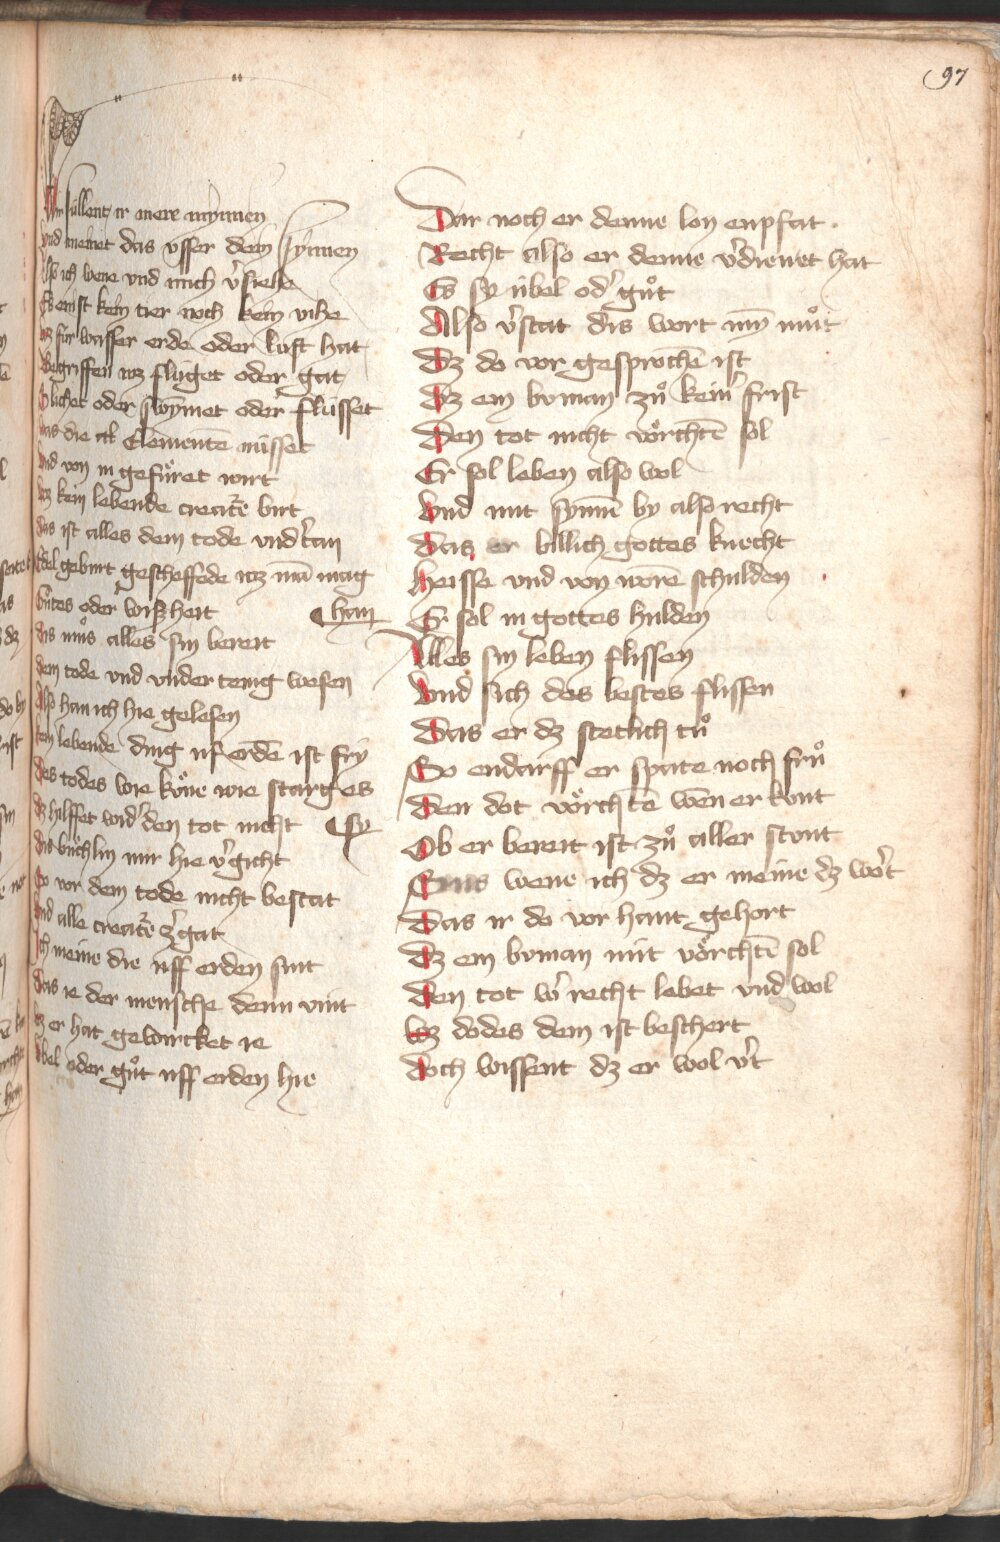 97
Wir süllent ir mere mynnen
Vnd meinet das vsser dem synnen
Als ich wene vnd mich v̓stehe
Es enist kein tier noch kein vihe
Wz für wasser erde oder luft hat
Begriffen wz fluget oder gat
Slichet oder swym̄et oder flüsset
Was die al Elementē nüsset
Vnd von in gefůret wirt
Wz kein lebende creatr̄e birt
Das ist alles dem tode vnd̓tan
Edel geburt gescheffede wz mā mag
Gůtes oder wißheit han
Dis můs alles sin bereit
Dem tode vnd vnder tenig wesen
Also han ich hie gelesen
Kein lebende ding uf erdē ist fry
Des todes wie kůne wie starg es sy
Es hilffet wid̓ den tot nicht
Dis büchlin mir hie v̓gicht
So vor dem tode nicht bestat
Vnd alle creatr̄e z̓gat
Ich meine die uff erden sint
Das ie der mensche denn vint
Wz er hat gewürcket ie
Übel oder gůt uff erden hie
Dar noch er denne lon enpfat
Recht also er denne v̓dienet hat
Es sy übel od̓ gůt
Also v̓stat dis wort mȳ můt
Dz do vor gesprochē ist
Dz ein bvman zů kein̓ frist
Den tot nicht vörchtē sol
Er sol leben also wol
Vnd mit synnē by also recht
Das er billich gottes knecht
Heisse vnd von worē schulden
Er sol in gottes hulden
Alles sin leben slissen
Vnd sich des bestes flissen
Das er dz stetlich tů
So endarff er spate noch frů
Den dot vörchtē wēn er kvnt
Ob er bereit ist zů aller stunt
Suns wene ich dz er meine dz wo̓rt
Das ir do vor hant gehort
Dz ein bvman nüt vörchtē sol
Den tot w̓ recht lebet vnd wol
Wz dodes dem ist beschert
Doch wissent dz er wol v̓t